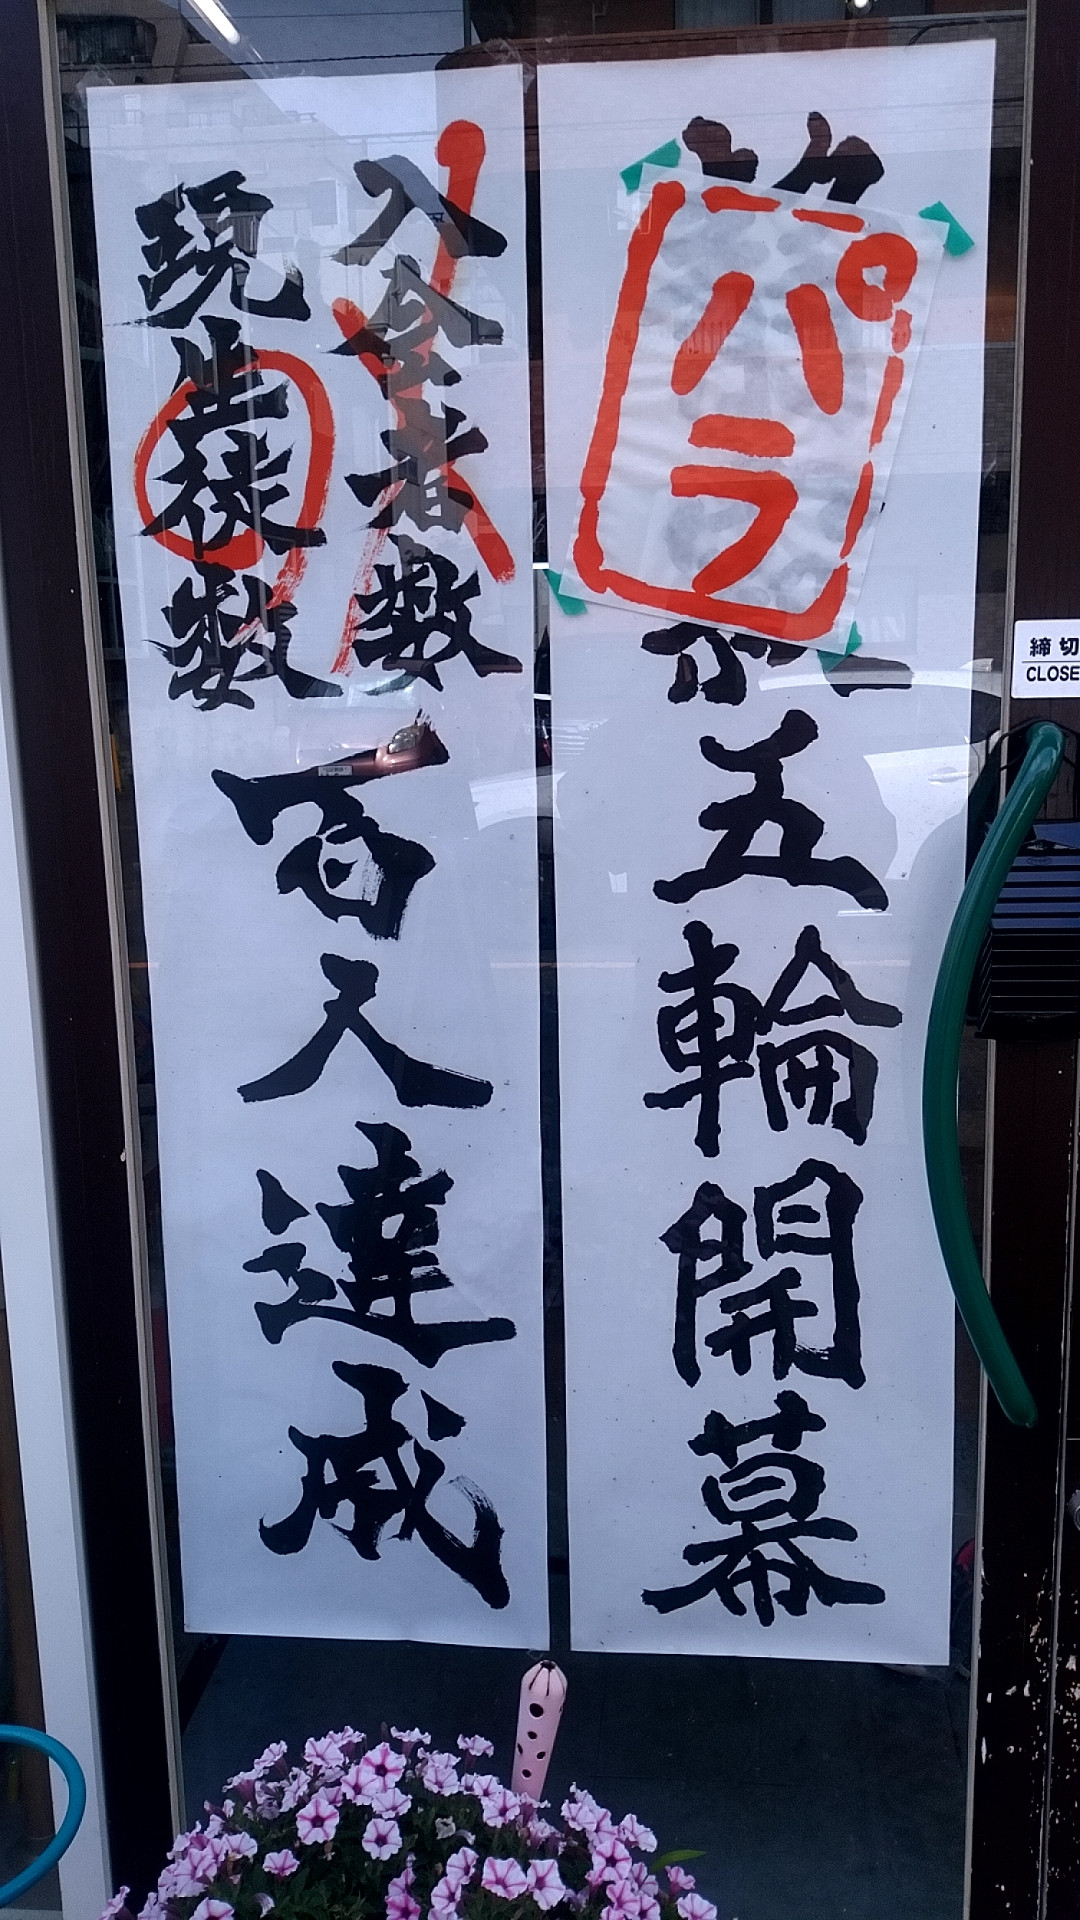 パラ
五輪開幕
入会者数
現生徒数
百人達成
締切
CLOSE